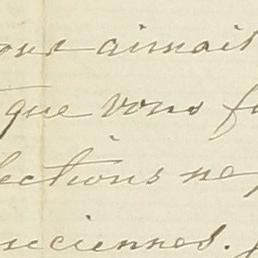 ous aimait
que vous f
lections ne
siciennes.